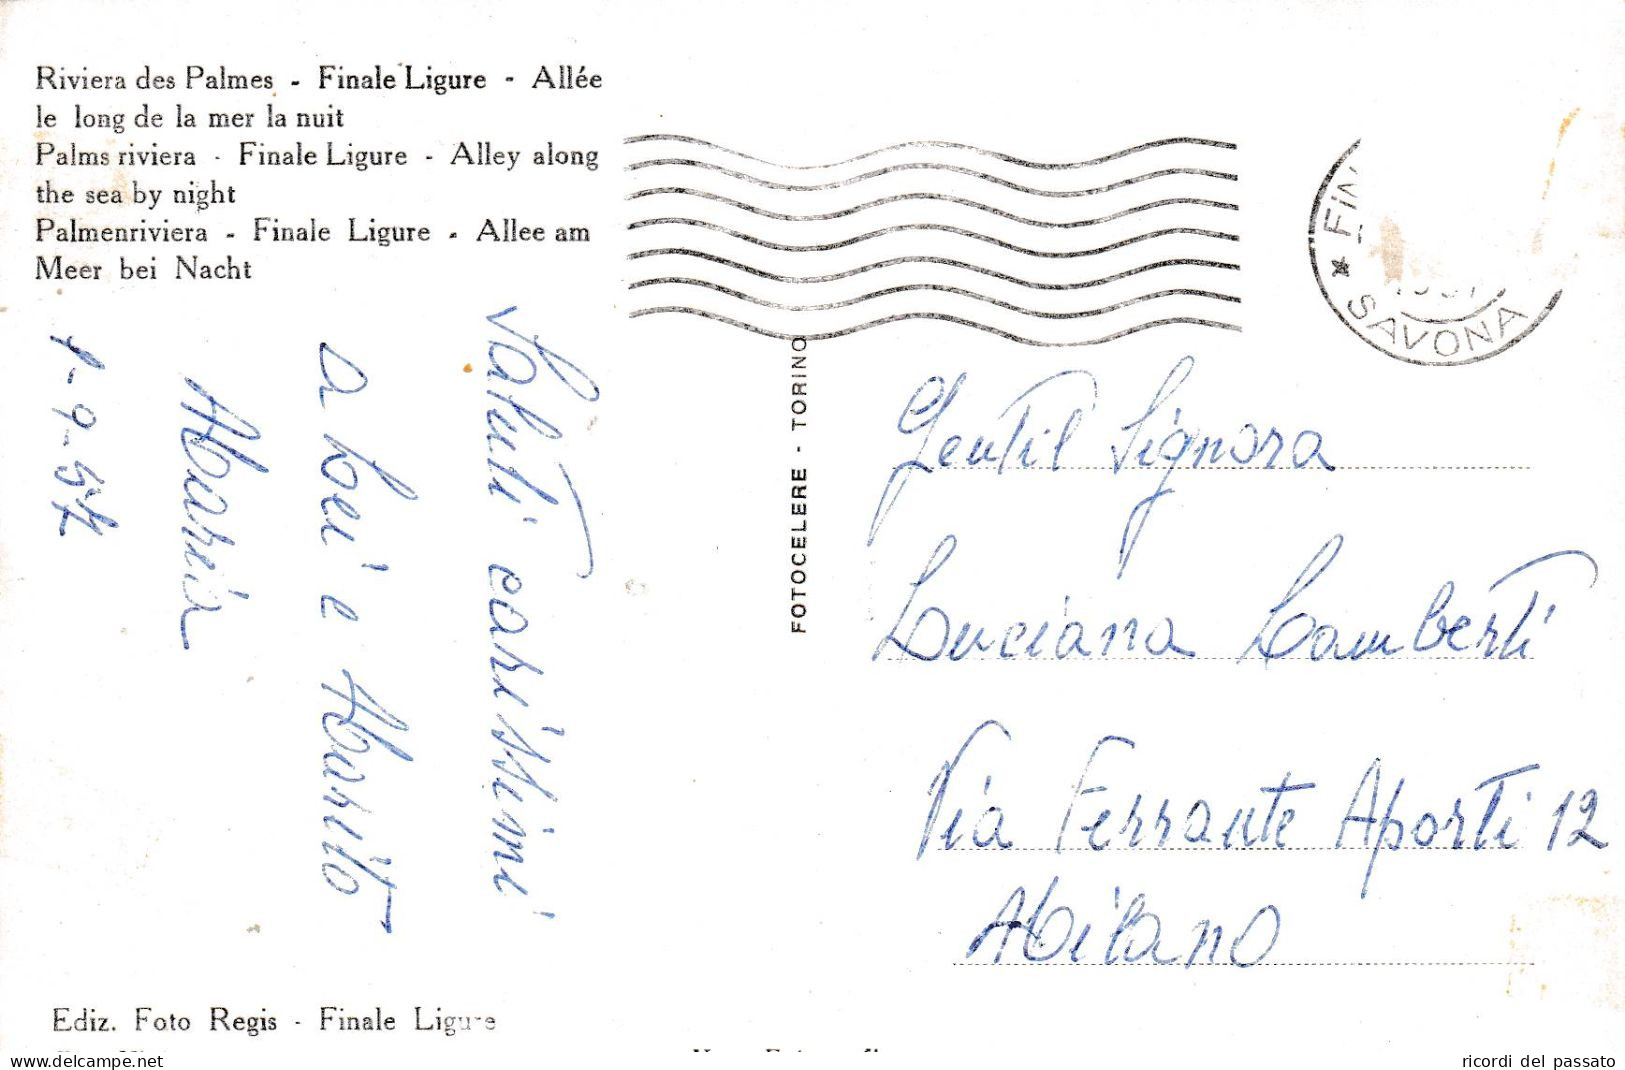 Riviera des Palmes - Finale Ligure - Allée
le long de la mer la nuit
Palms riviera - Finale Ligure - Alley along
the sea by night
Palmenriviera - Finale Ligure - Allee am
Meer bei Nacht
Saluti carissimi
a lei e Marito
Maria
FOTOCELERE - TORINO
* FIN
SAVONA
Gentil Signora
Luciana Lamberti
Via Ferrante Aporti 12
Milano
Ediz. Foto Regis - Finale Ligure
ricordi del passato